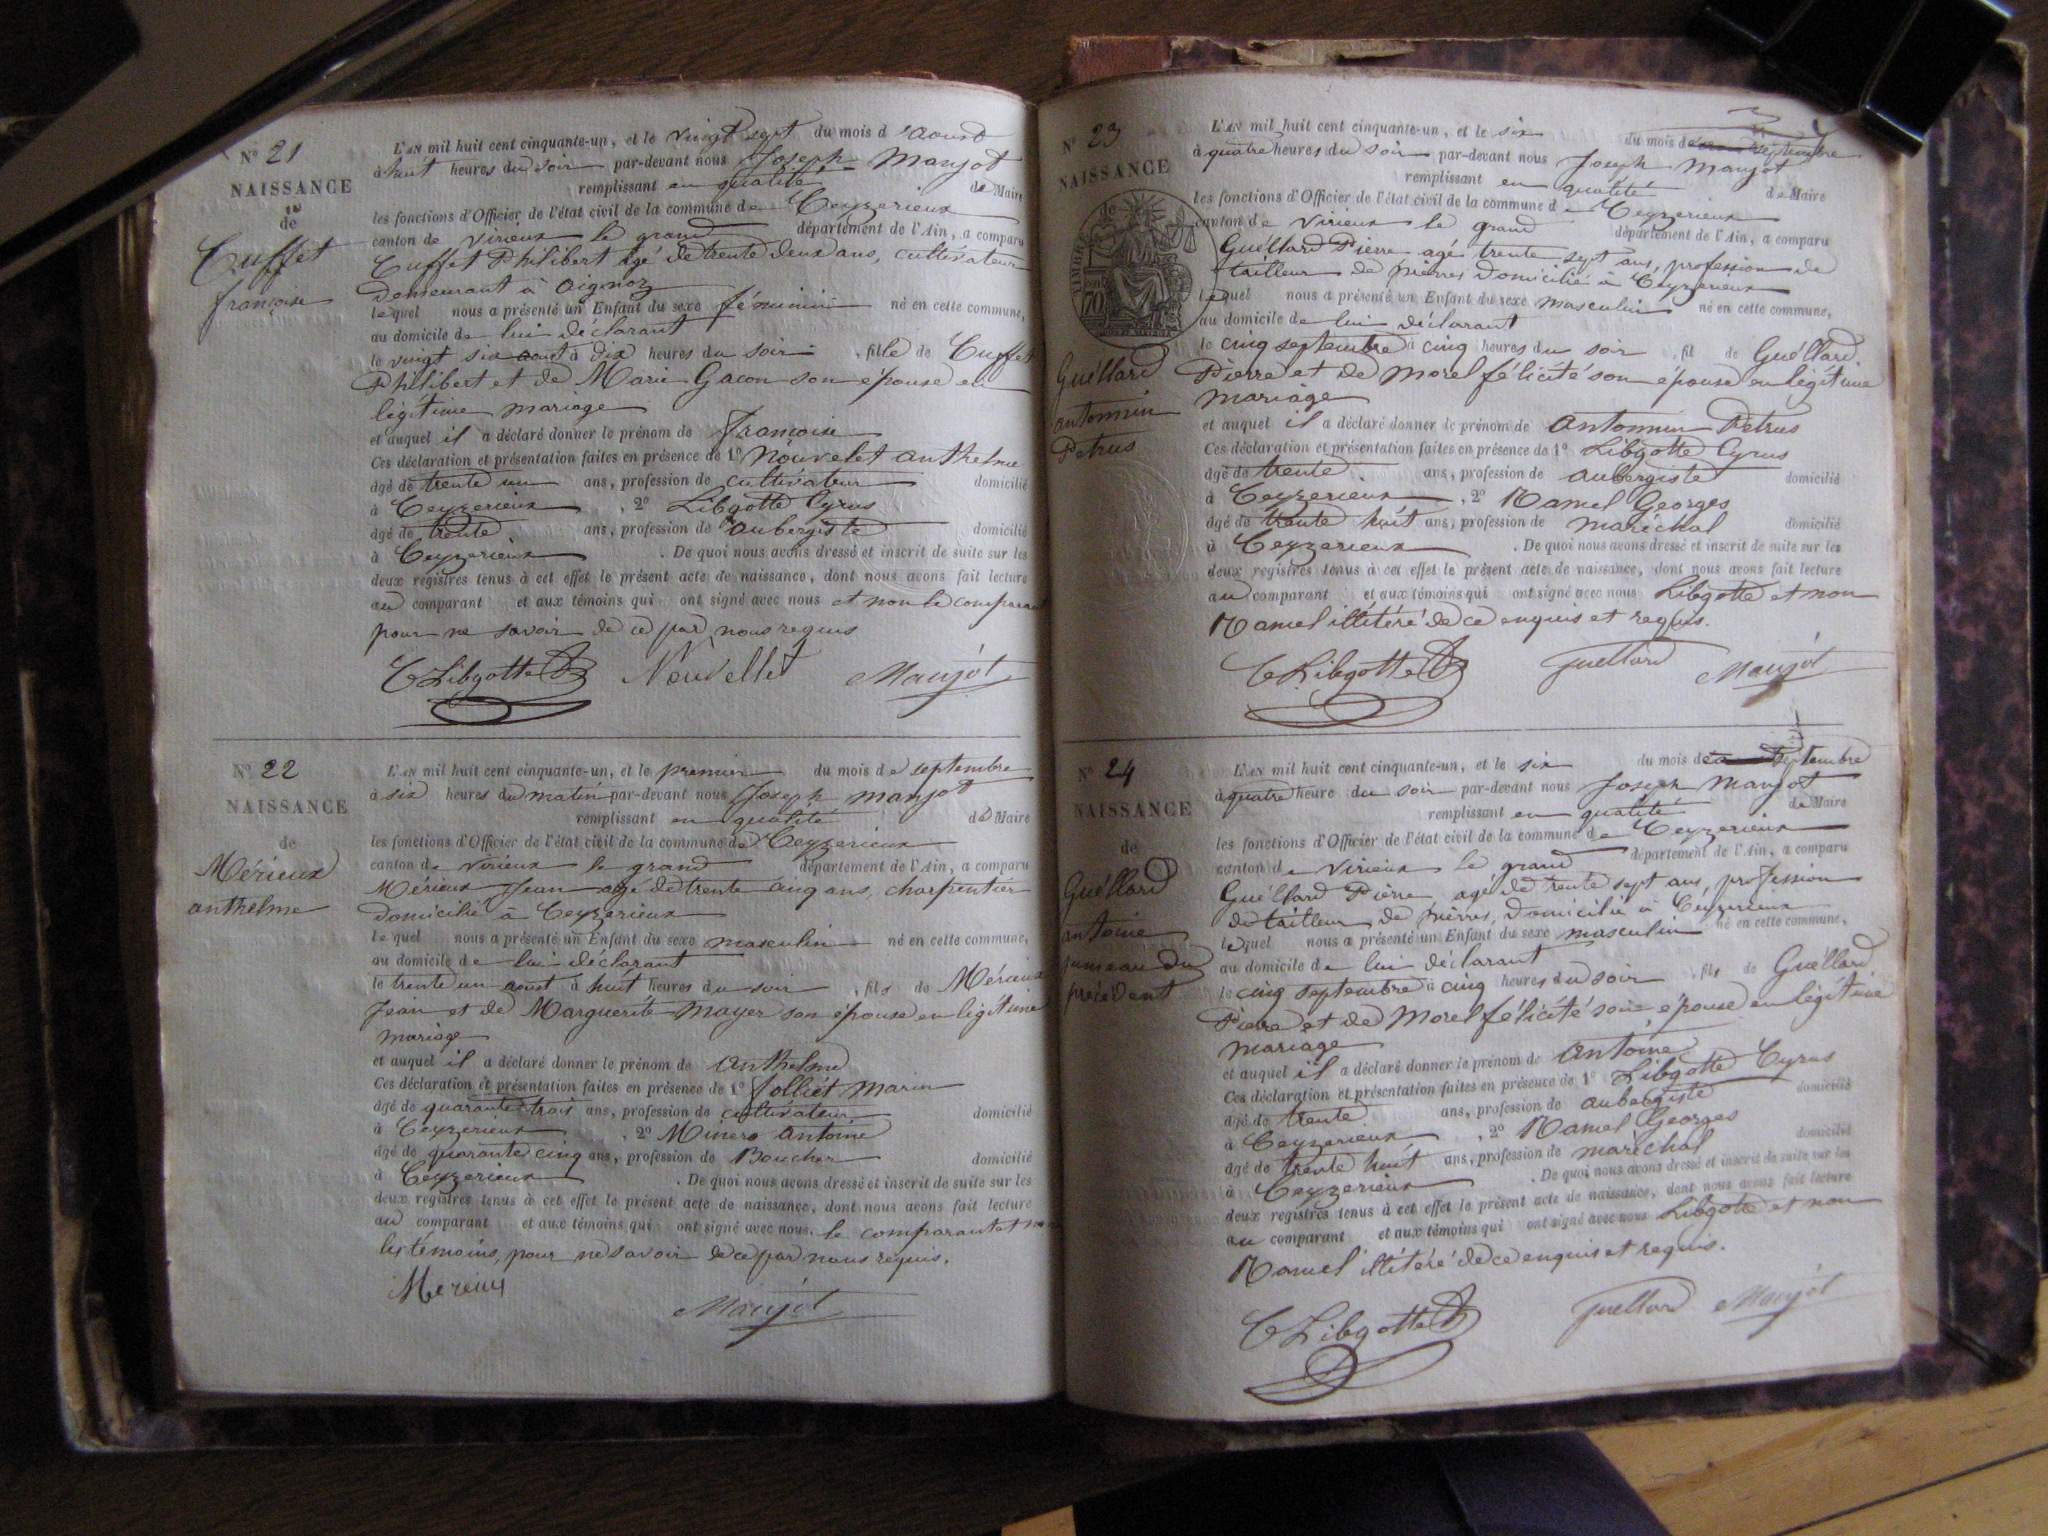 N° 21
NAISSANCE
de
Cuffet
françoise
L'AN mil huit cent cinquante-un, et le vingt sept du mois d'aoust
à huit heures du soir par-devant nous Joseph Maujot
remplissant en qualité de Maire
les fonctions d'Officier de l'état civil de la commune de Ceyzerieux
canton de virieux le grand département de l'Ain, a comparu
Cuffet Philibert agé de trente deux ans, cultivateur
demeurant à aignoz
lequel nous a présenté un Enfant du sexe féminin né en cette commune,
au domicile de lui déclarant
le vingt six aout à dix heures du soir, fille de Cuffet
Philibert et de Marie Gacon son épouse en
légitime mariage
et auquel il a déclaré donner le prénom de françoise
Ces déclaration et présentation faites en présence de 1° Nouvelet anthelme
âgé de trente un ans, profession de cultivateur domicilié
à Ceyzerieux, 2° Libgotte Cyrus
âgé de trente ans, profession de aubergiste domicilié
à Ceyzerieux. De quoi nous avons dressé et inscrit de suite sur les
deux registres tenus à cet effet le présent acte de naissance, dont nous avons fait lecture
au comparant et aux témoins qui ont signé avec nous et non le comparant
pour ne savoir de ce par nous requis
C Libgotte Nouvellet Maujot
N° 22
NAISSANCE
de
Mérieux
anthelme
L'AN mil huit cent cinquante-un, et le premier du mois de septembre
à six heures du matin par-devant nous Joseph maujot
remplissant en qualité de Maire
les fonctions d'Officier de l'état civil de la commune de Ceyzerieux
canton de virieux le grand département de l'Ain, a comparu
Mérieux Jean agé de trente cinq ans, charpentier
domicilié à Ceyzerieux
lequel nous a présenté un Enfant du sexe masculin né en cette commune,
au domicile de lui déclarant
le trente un aout à huit heures du soir, fils de Mérieux
Jean et de Marguerite Mayer son épouse en légitime
mariage
et auquel il a déclaré donner le prénom de anthelme
Ces déclaration et présentation faites en présence de 1° Jolliet Marin
âgé de quarante trois ans, profession de cultivateur domicilié
à Ceyzerieux, 2° antoine
âgé de quarante cinq ans, profession de Boucher domicilié
à Ceyzerieux. De quoi nous avons dressé et inscrit de suite sur les
deux registres tenus à cet effet le présent acte de naissance, dont nous avons fait lecture
au comparant et aux témoins qui ont signé avec nous, le comparant et non
les témoins, pour ne savoir de ce par nous requis.
Mereiux Maujot
N° 23
NAISSANCE
de
Guéllard
antonnin
Petrus
L'AN mil huit cent cinquante-un, et le six du mois de septembre
à quatre heures du soir par-devant nous Joseph Maujot
remplissant en qualité de Maire
les fonctions d'Officier de l'état civil de la commune de Ceyzerieux
canton de virieux le grand département de l'Ain, a comparu
Guéllard Pierre agé trente sept ans, profession de
tailleur de pierres domicilié à Ceyzerieux
lequel nous a présenté un Enfant du sexe masculin né en cette commune,
au domicile de lui déclarant
le cinq septembre à cinq heures du soir, fil de Guéllard
Pierre et de Morel félicité son épouse en légitime
mariage
et auquel il a déclaré donner le prénom de antonnin Pétrus
Ces déclaration et présentation faites en présence de 1° Libgotte Cyrus
âgé de trente ans, profession de aubergiste domicilié
à Ceyzerieux, 2° Ramel Georges
âgé de trente huit ans, profession de maréchal domicilié
à Ceyzerieux. De quoi nous avons dressé et inscrit de suite sur les
deux registres tenus à cet effet le présent acte de naissance, dont nous avons fait lecture
au comparant et aux témoins qui ont signé avec nous Libgotte et non
Ramel illitéré de ce enquis et requis.
C Libgotte Guellard Maujot
N° 24
NAISSANCE
de
Guéllard
antoine
jumeau du
précédent
L'AN mil huit cent cinquante-un, et le six du mois de septembre
à quatre heure du soir par-devant nous Joseph Maujot
remplissant en qualité de Maire
les fonctions d'Officier de l'état civil de la commune de Ceyzerieux
canton de virieux le grand département de l'Ain, a comparu
Guéllard Pierre, agé de trente sept ans, profession
de tailleur de pierres, domicilié à Ceyzerieux
lequel nous a présenté un Enfant du sexe masculin né en cette commune,
au domicile de lui déclarant
le cinq septembre à cinq heures du soir, fils de Guéllard
Pierre et de Morel félicité son épouse en légitime
mariage
et auquel il a déclaré donner le prénom de antoine
Ces déclaration et présentation faites en présence de 1° Libgotte Cyrus
âgé de trente ans, profession de aubergiste domicilié
à Ceyzerieux, 2° Ramel Georges
âgé de trente huit ans, profession de maréchal domicilié
à Ceyzerieux. De quoi nous avons dressé et inscrit de suite sur les
deux registres tenus à cet effet le présent acte de naissance, dont nous avons fait lecture
au comparant et aux témoins qui ont signé avec nous Libgotte et non
Ramel illitéré de ce enquis et requis.
C Libgotte Guellard Maujot